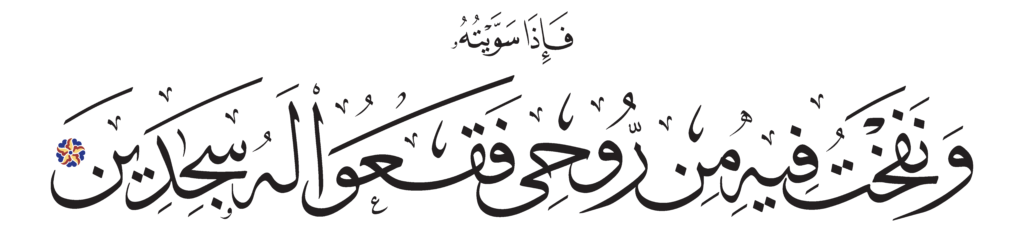 فَإِذَا سَوَّيْتُهُۥ
وَنَفَخْتُ فِيهِ مِن رُّوحِى فَقَعُوا۟ لَهُۥ سَـٰجِدِينَ